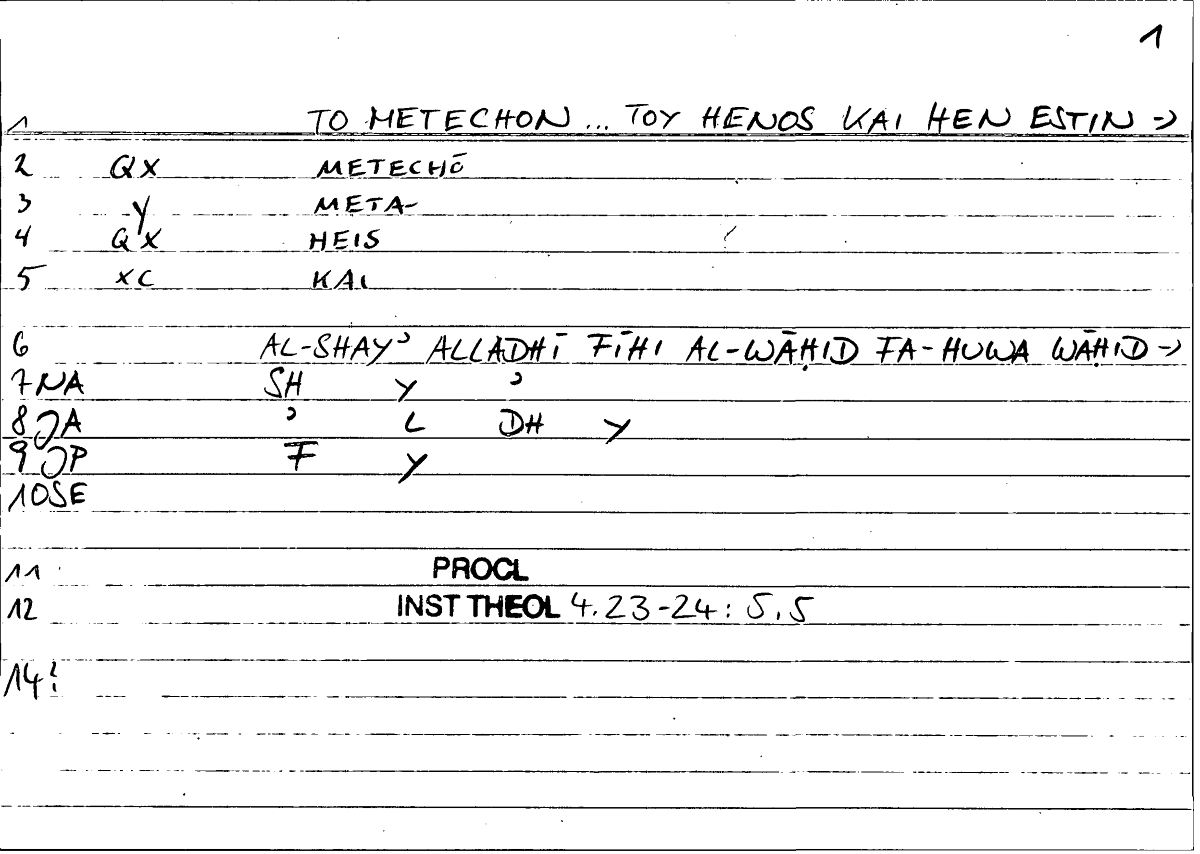 1
1 TO METECHON ... TOY HENOS KAI HEN ESTIN →
2 QX METECHŌ
3 y META-
4 QX HEIS
5 XC KAI
6 AL-SHAYʾ ALLADHĪ FĪHI AL-WĀḤID FA-HUWA WĀḤID →
7 NA SH Y ʾ
8 JA ʾ L DH Y
9 JP F Y
10 SE
11 PROCL
12 INST THEOL 4.23-24: 5.5
14?